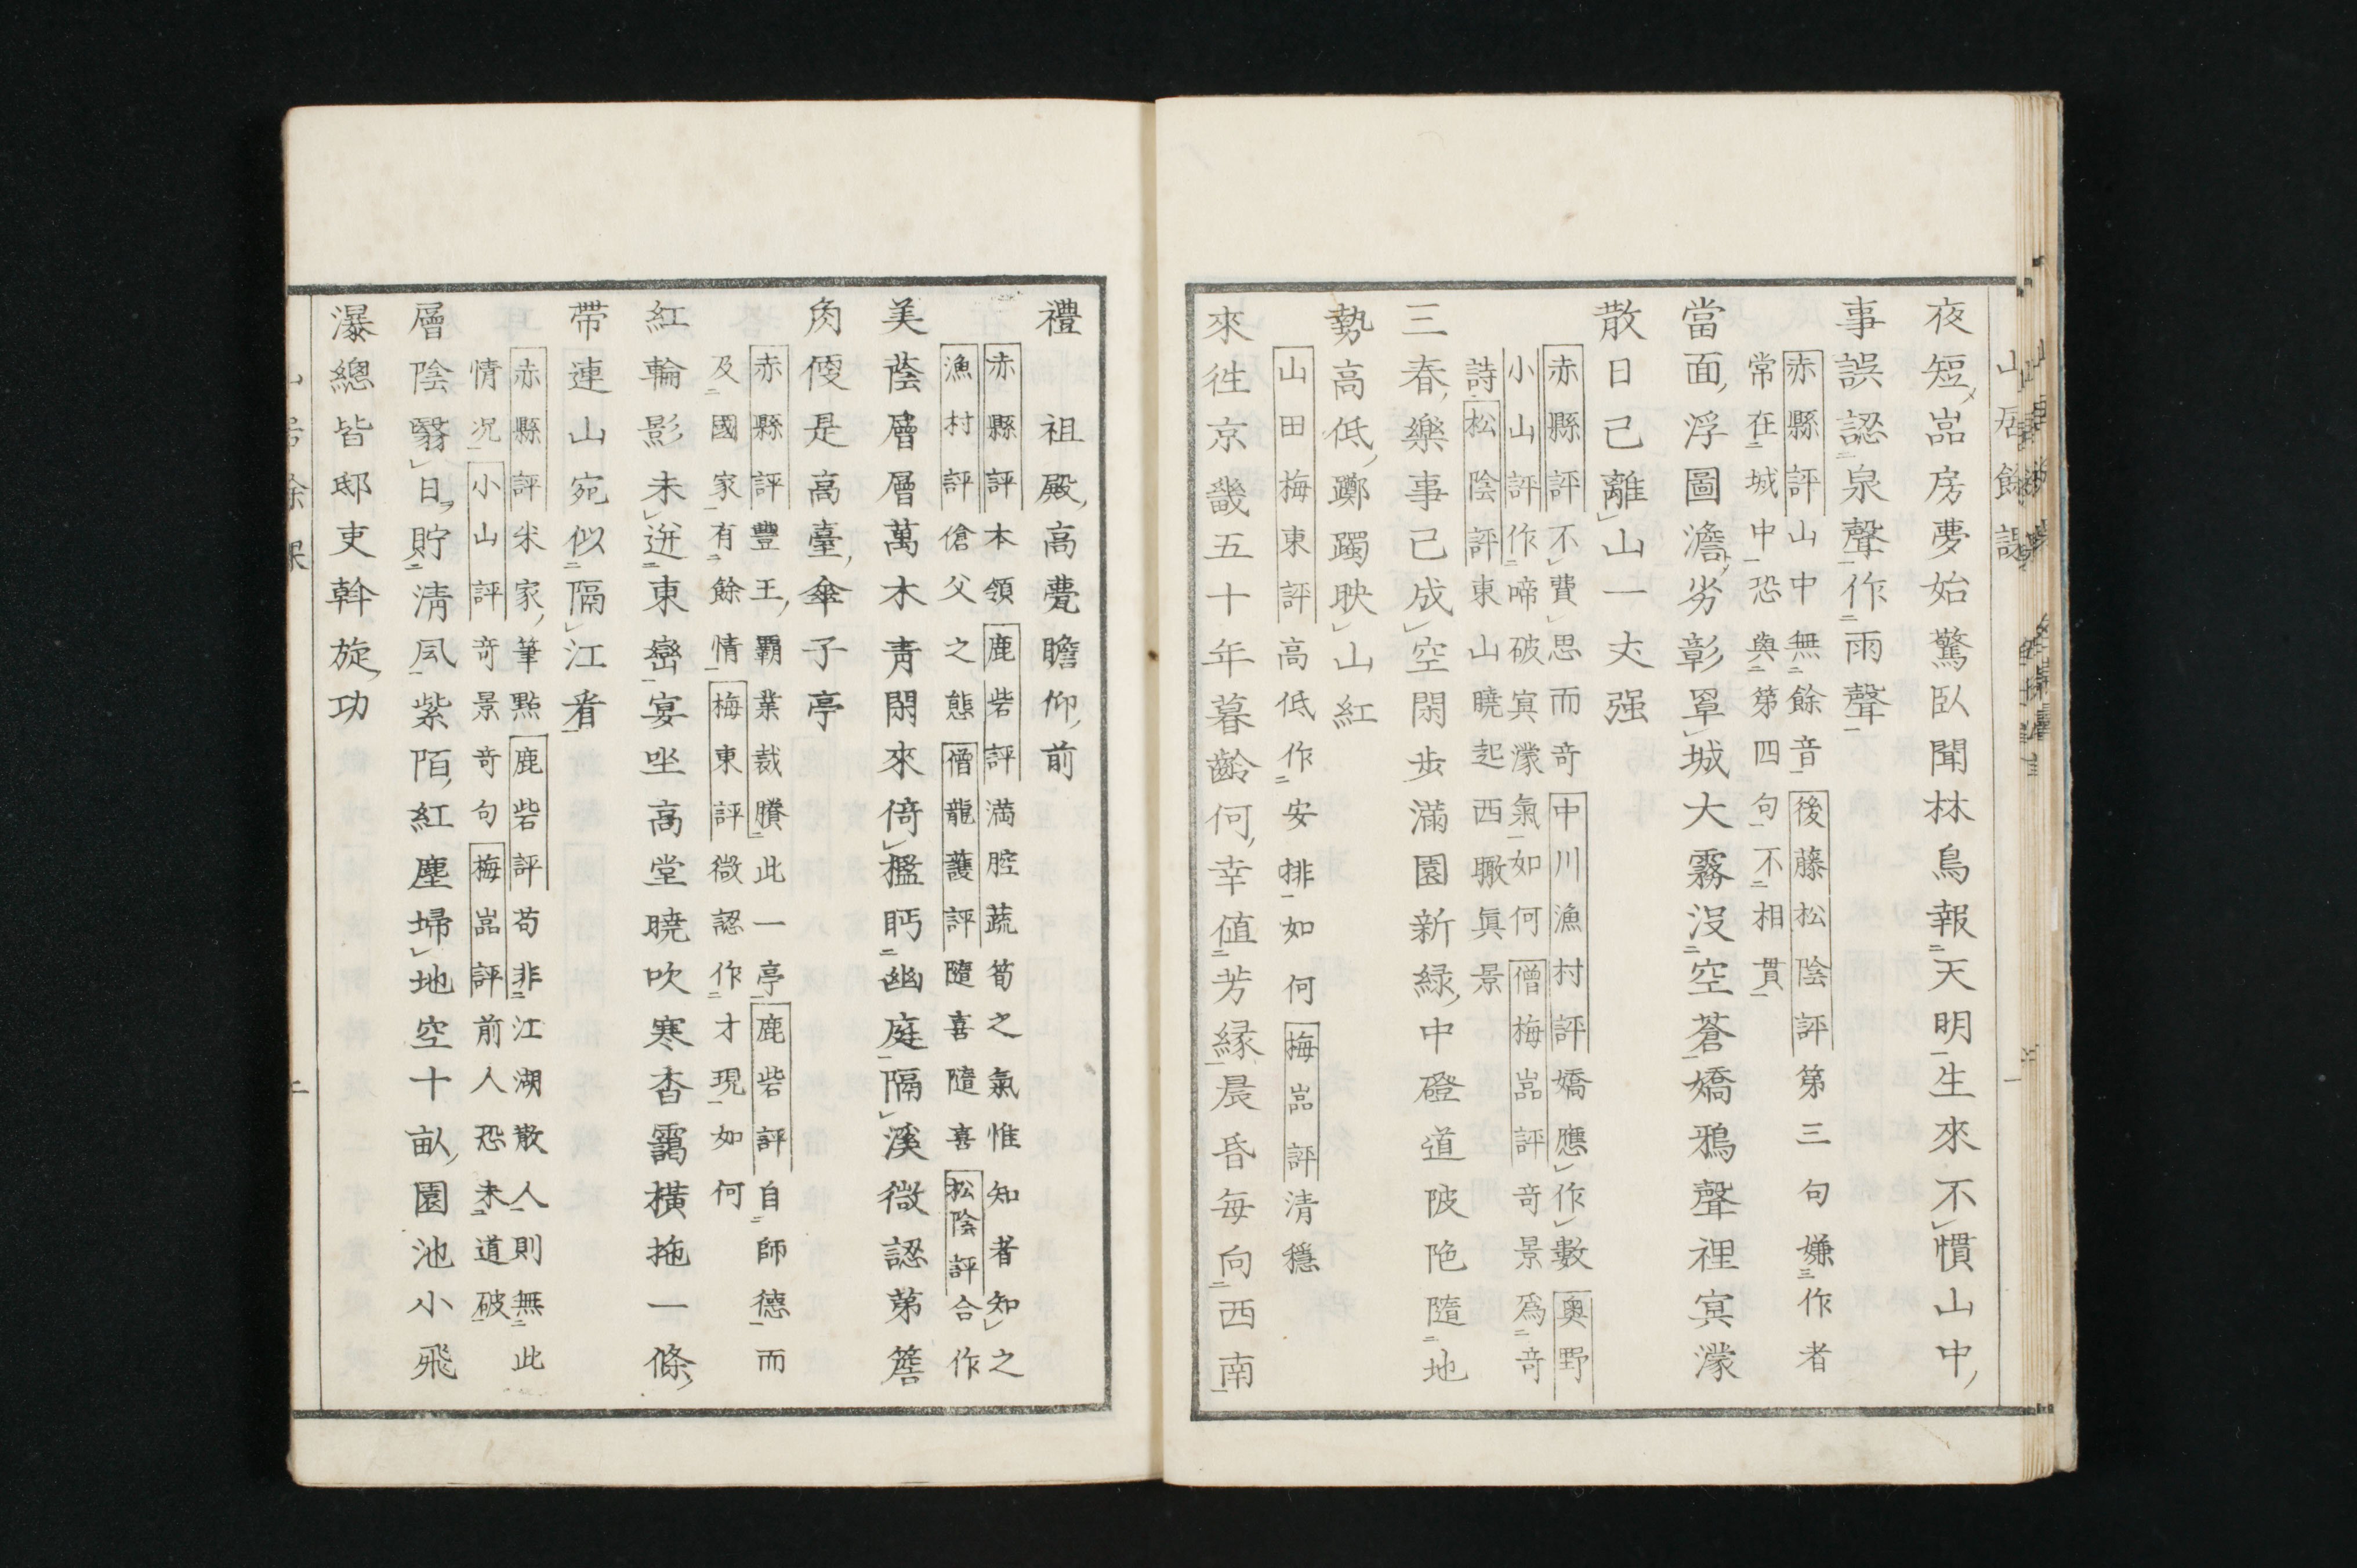 山居餘課
夜短嵓房夢始驚臥聞林鳥報天明生來不慣山中
事誤認泉聲作雨聲
赤縣評山中無餘音後藤松陰評第三句嫌作者
常在城中恐與第四句不相貫
當面浮圖澹劣彰罩城大霧沒空蒼嬌鴉聲裡冥濛
散日已離山一丈强
赤縣評不費思而奇中川漁村評嬌應作數奥野
小山評作啼破冥濛氣如何僧梅嵓評奇景爲奇
詩松陰評東山曉起西瞰眞景
三春樂事已成空閑步滿園新緑中磴道陂陁隨地
勢高低躑躅映山紅
山田梅東評高低作安排如何梅嵓評清穩
來往京畿五十年暮齡何幸値芳縁晨昏每向西南
禮祖殿高甍瞻仰前
赤縣評本領鹿砦評満腔蔬筍之氣惟知者知之
漁村評傖父之態僧龍護評隨喜隨喜松陰評合作
美蔭層層萬木靑閑來倚檻眄幽庭隔溪微認第簷
角便是高臺傘子亭
赤縣評豐王覇業裁賸此一亭鹿砦評自師德而
及國家有餘情梅東評微認作才現如何
紅輪影未逬東巒宴坐高堂曉吹寒杳靄橫拖一條
帶連山宛似隔江看
赤縣評米家筆點鹿砦評苟非江湖散人則無此
情况小山評奇景奇句梅嵓評前人恐未道破
層陰翳日貯清風紫陌紅塵埽地空十畝園池小飛
瀑總皆邸吏斡旋功